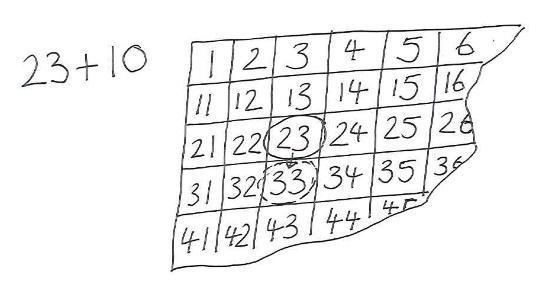 23+10
1 2 3 4 5 6
11 12 13 14 15 16
21 22 23 24 25 26
31 32 33 34 35 36
41 42 43 44 45